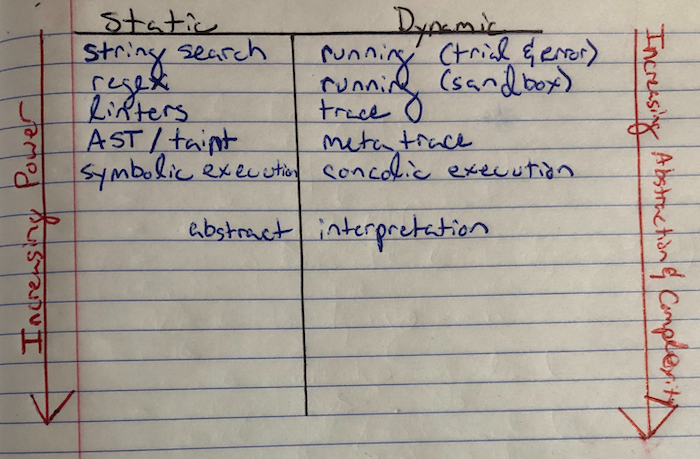 Static Dynamic
string search running (trial & error)
regex running (sandbox)
linters trace
AST / taint meta trace
symbolic execution concolic execution
abstract interpretation
Increasing Power
Increasing Abstraction & Complexity